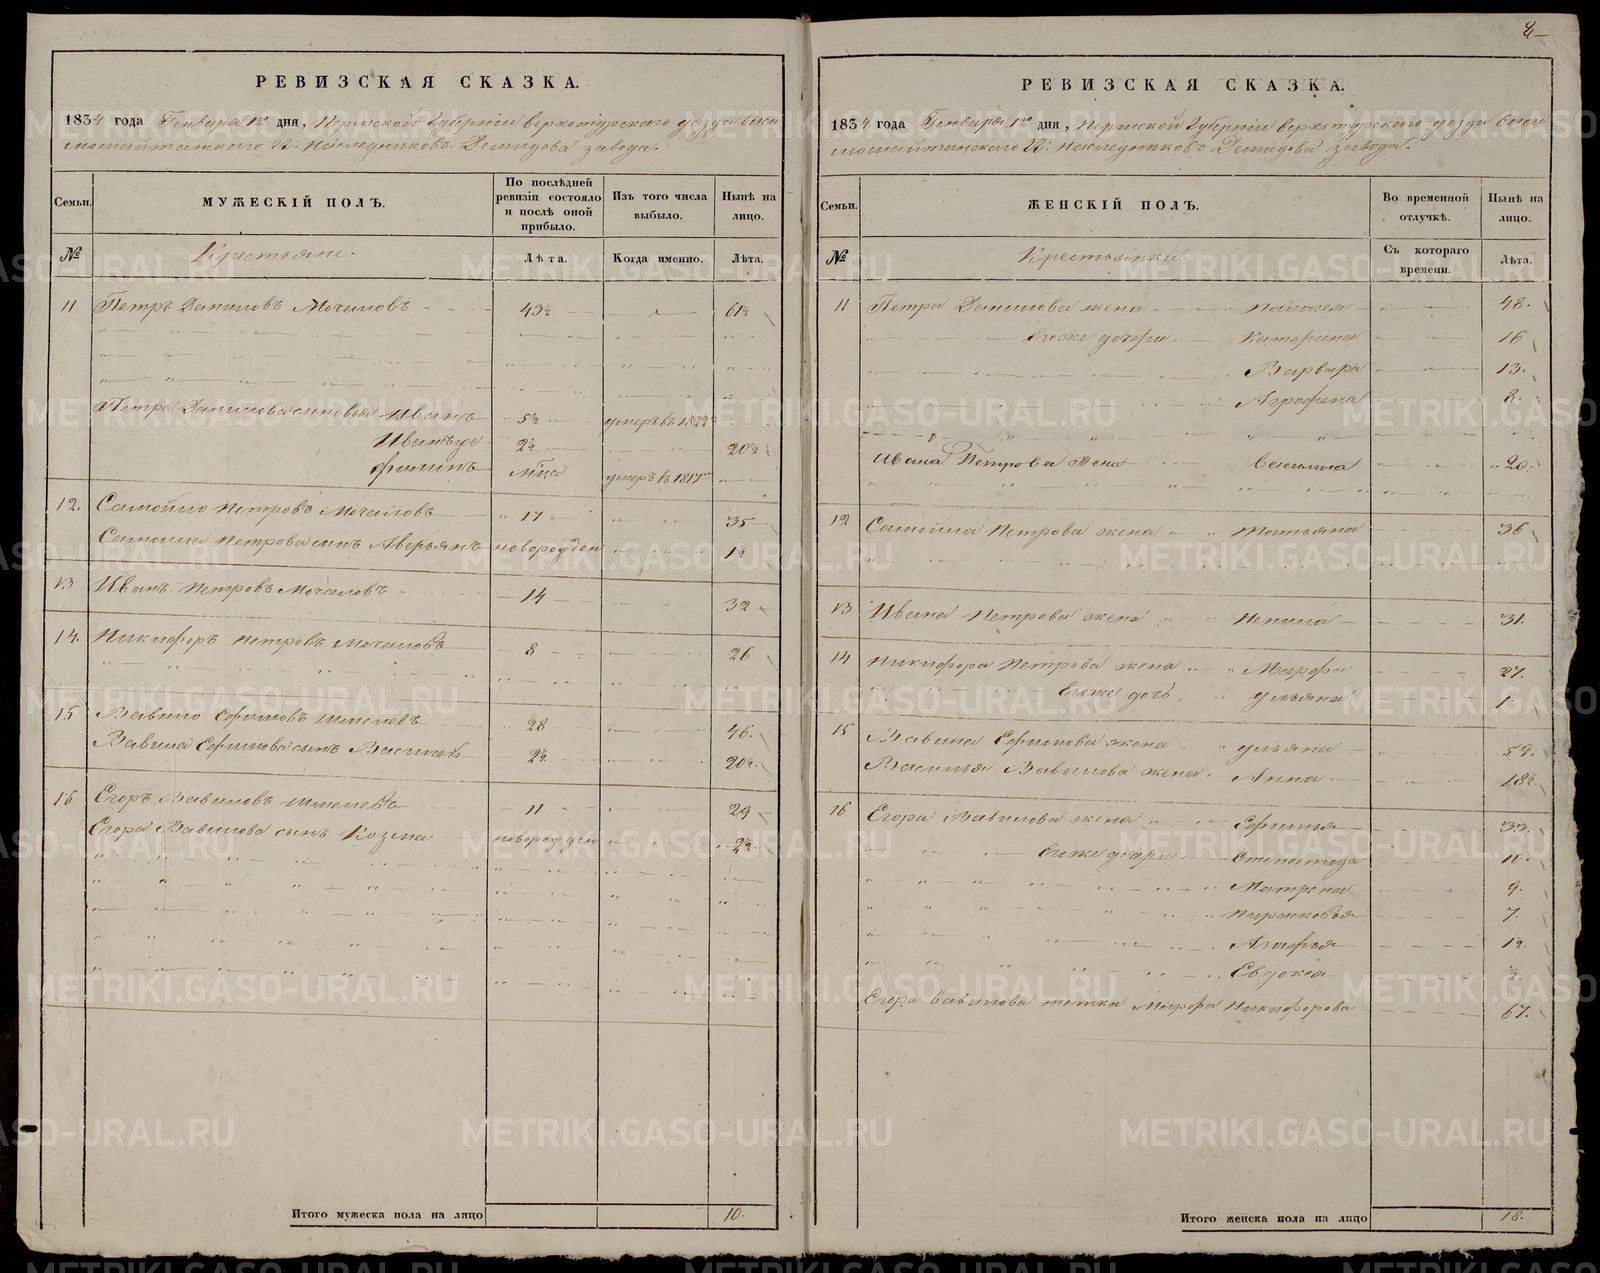 8
РЕВИЗСКАЯ СКАЗКА.
1834 года Генваря 1го дня, Пермской Губерніи верхотурскаго уезда висимо
шайтанского Н: Наследниковъ Демидова завода.
Семьи.
МУЖЕСКІЙ ПОЛЪ.
По послѣдней ревизіи состояло и послѣ оной прибыло.
Изъ того числа выбыло.
Нынѣ на лицо.
№
Крестьяне.
Лѣта.
Когда именно.
Лѣта.
11 Петръ Даниловъ Мочаловъ 43½ 61½
Петра Данилова сыновья Иванъ 5½ умеръ въ 1822
Иванъ же 2½ 20½
Филипъ м:ца умеръ въ 1817
12. Самойло Петровъ Мочаловъ 17 35
Самойла Петрова сынъ Аверьянъ новорожден 1½
13 Иванъ Петровъ Мочаловъ 14 32
14. Никифоръ Петровъ Мочаловъ 8 26
15 Вавило Ефимовъ Шмелевъ 28 46.
Вавила Ефимова сынъ Василей 2½ 20½.
16 Егоръ Вавиловъ Шмелевъ 11 29
Егора Вавилова сынъ Козма новорожден 2½.
Итого мужеска пола на лицо 10.
РЕВИЗСКАЯ СКАЗКА.
1834 года Генваря 1го дня, Пермской Губерніи верхотурскаго уезда виси
мошайтанского Н: Наследниковъ Демидова завода.
Семьи.
ЖЕНСКІЙ ПОЛЪ.
Во временной отлучкѣ.
Нынѣ на лицо.
№
Крестьянки
Съ котораго времени.
Лѣта.
11 Петра Данилова жена Палагея 48.
Егоже дочери Катерина 16
Варвара 13.
Агрофена 8.
Ивана Петрова Жена Василиса 20.
12 Самойла Петрова жена Татьяна 36
13 Ивана Петрова жена Ненила 31.
14 Никифора Петрова жена Марфа 27.
Егоже дочь Ульяна 1
15 Вавила Ефимова жена Ульяна 59.
Василья Вавилова жена Анна 18½.
16 Егора Вавилова жена Ефимья 32.
Егоже дочери Степанида 10.
Матрена 9.
Парасковья 7.
Агафья 1½.
Евдокея ½.
Егора Вавилова тетка Марфа Никифорова 67.
Итого женска пола на лицо 18.